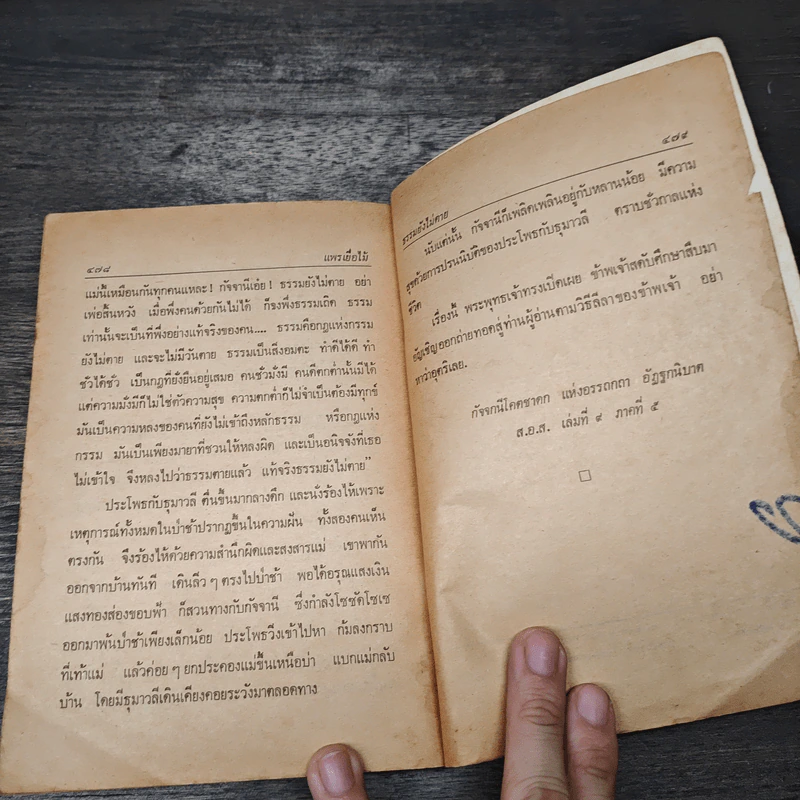 ๔๗๘ แพรเยื่อไม้
แม่นี้เหมือนกันทุกคนแหละ! กัจจานีเอ๋ย! ธรรมยังไม่ตาย อย่า
เพ่อสิ้นหวัง เมื่อพึ่งคนด้วยกันไม่ได้ ก็จงพึ่งธรรมเถิด ธรรม
เท่านั้นจะเป็นที่พึ่งอย่างแท้จริงของคน.... ธรรมคือกฎแห่งกรรม
ยังไม่ตาย และจะไม่มีวันตาย ธรรมเป็นสิ่งอมตะ ทำดีได้ดี ทำ
ชั่วได้ชั่ว เป็นกฎที่ยั่งยืนอยู่เสมอ คนชั่วมั่งมี คนดีตกต่ำนั้นมีได้
แต่ความมั่งมีก็ไม่ใช่ตัวความสุข ความตกต่ำก็ไม่จำเป็นต้องมีทุกข์
มันเป็นความหลงของคนที่ยังไม่เข้าถึงหลักธรรม หรือกฎแห่ง
กรรม มันเป็นเพียงมายาที่ชวนให้หลงผิด และเป็นอนิจจังที่เธอ
ไม่เข้าใจ จึงหลงไปว่าธรรมตายแล้ว แท้จริงธรรมยังไม่ตาย”
ประโพธกับธุมาวลี ตื่นขึ้นมากลางดึก และนั่งร้องไห้เพราะ
เหตุการณ์ทั้งหมดในป่าช้าปรากฏขึ้นในความฝัน ทั้งสองคนเห็น
ตรงกัน จึงร้องไห้ด้วยความสำนึกผิดและสงสารแม่ เขาพากัน
ออกจากบ้านทันที เดินลิ่ว ๆ ตรงไปป่าช้า พอได้อรุณแสงเงิน
แสงทองส่องขอบฟ้า ก็สวนทางกับกัจจานี ซึ่งกำลังโซซัดโซเซ
ออกมาพ้นป่าช้าเพียงเล็กน้อย ประโพธวิ่งเข้าไปหา ก้มลงกราบ
ที่เท้าแม่ แล้วค่อย ๆ ยกประคองแม่ขึ้นเหนือบ่า แบกแม่กลับ
บ้าน โดยมีธุมาวลีเดินเคียงคอยระวังมาตลอดทาง
ธรรมยังไม่ตาย ๔๗๙
นับแต่นั้น กัจจานีก็เพลิดเพลินอยู่กับหลานน้อย มีความ
สุขด้วยการปรนนิบัติของประโพธกับธุมาวลี ตราบชั่วกาลแห่ง
ชีวิต
เรื่องนี้ พระพุทธเจ้าทรงเปิดเผย ข้าพเจ้าสดับศึกษาสืบมา
อัญเชิญออกถ่ายทอดสู่ท่านผู้อ่านตามวิธีลีลาของข้าพเจ้า อย่า
หาว่าอุตริเลย.
กัจจกนีโคตชาดก แห่งอรรถกถา อัฏฐกนิบาต
ส.อ.ส. เล่มที่ ๙ ภาคที่ ๕